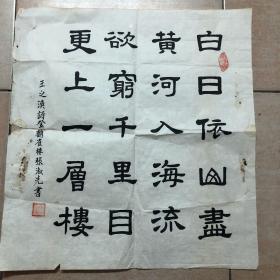 白日依山盡
黃河入海流
欲窮千里目
更上一層樓
王之渙詩登鸛雀樓張淑先書